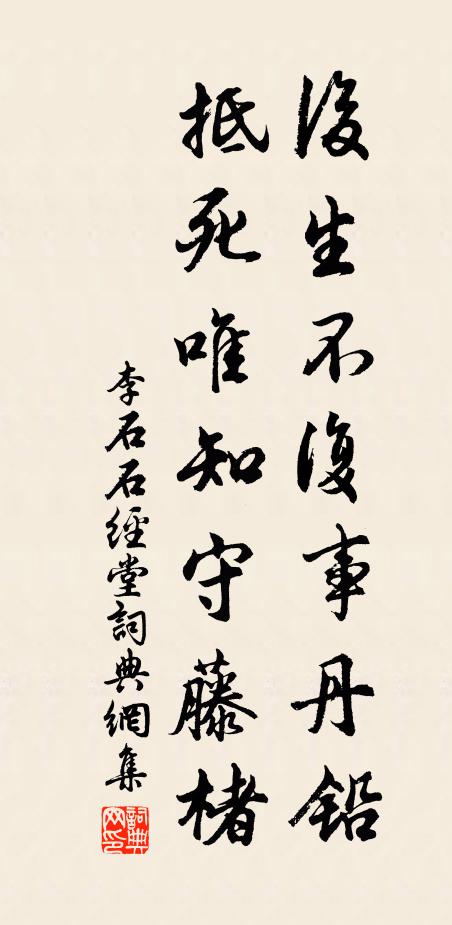 後生不復事丹鉛
抵死唯知守藤楮
李石石經堂詞典網集
詞典網印